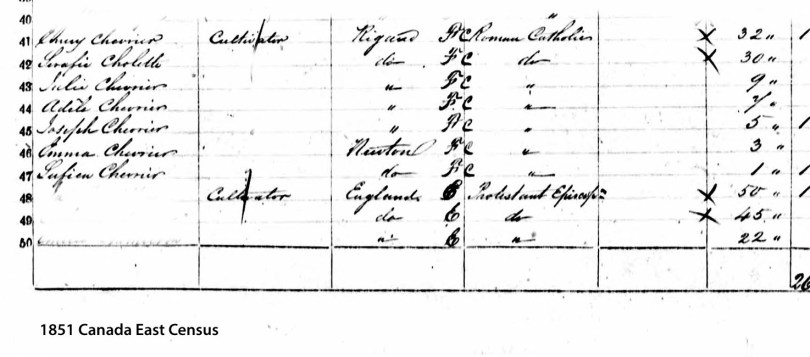 40 "
41 Emery Chevrier Cultivator Rigaud F C Roman Catholic X 32 " 1
42 Serafie Cholette do F C do X 30 "
43 Julie Chevrier " F C " 9 "
44 Adile Chevrier " F C " 7 "
45 Joseph Chevrier " F C " 5 " 1
46 Emma Chevrier Newton F C " 3 "
47 Chevrier do F C " 1 " 1
48 Cultivator England E Protestant Episcopn X 50 " 1
49 do E do X 45 "
50 " E " 22 "
26
1851 Canada East Census